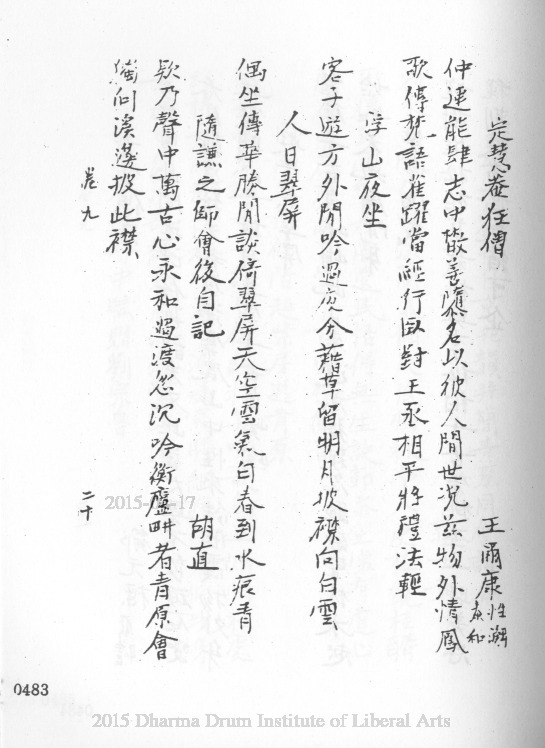 定慧菴狂僧 王爾康
仲連能肆志中散善隳名以彼人間世況茲物外情鳳
歌傳梵語雀躍當經行臥對王丞相平將禮法輕
浮山夜坐
客子遊方外閒吟過夜分藉草留明月披襟向白雲
人日翠屏
偶坐傳華勝閒談倚翠屏天空雲氣白春到水痕青
隨讌之 會後自記 胡直
欸乃聲中萬古心永和過渡忽沉吟衡廬畊者青原會
獨向溪邊披此襟
卷九 二十
0483
2015-  -17
2015 Dharma Drum Institute of Liberal Arts